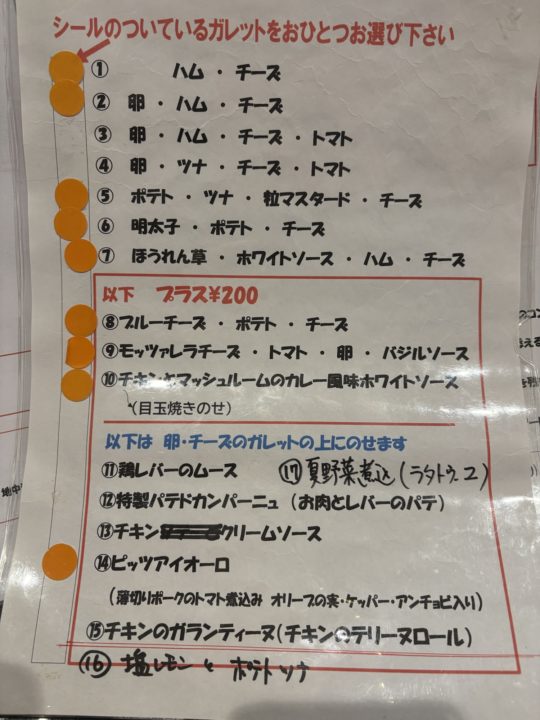 シールのついているガレットをおひとつお選び下さい
① ハム・チーズ
② 卵・ハム・チーズ
③ 卵・ハム・チーズ・トマト
④ 卵・ツナ・チーズ・トマト
⑤ ポテト・ツナ・粒マスタード・チーズ
⑥ 明太子・ポテト・チーズ
⑦ ほうれん草・ホワイトソース・ハム・チーズ
以下 プラス¥200
⑧ブルーチーズ・ポテト・チーズ
⑨モッツァレラチーズ・トマト・卵・バジルソース
⑩チキンとマッシュルームのカレー風味ホワイトソース
(目玉焼きのせ)
以下は 卵・チーズのガレットの上にのせます
⑪鶏レバーのムース ⑰夏野菜煮込(ラタトゥユ)
⑫特製パテドカンパーニュ(お肉とレバーのパテ)
⑬チキン クリームソース
⑭ピッツアイオーロ
(薄切りポークのトマト煮込み オリーブの実・ケッパー・アンチョビ入り)
⑮チキンのガランティーヌ(チキンのテリーヌロール)
⑯ 塩レモンとポテトツナ